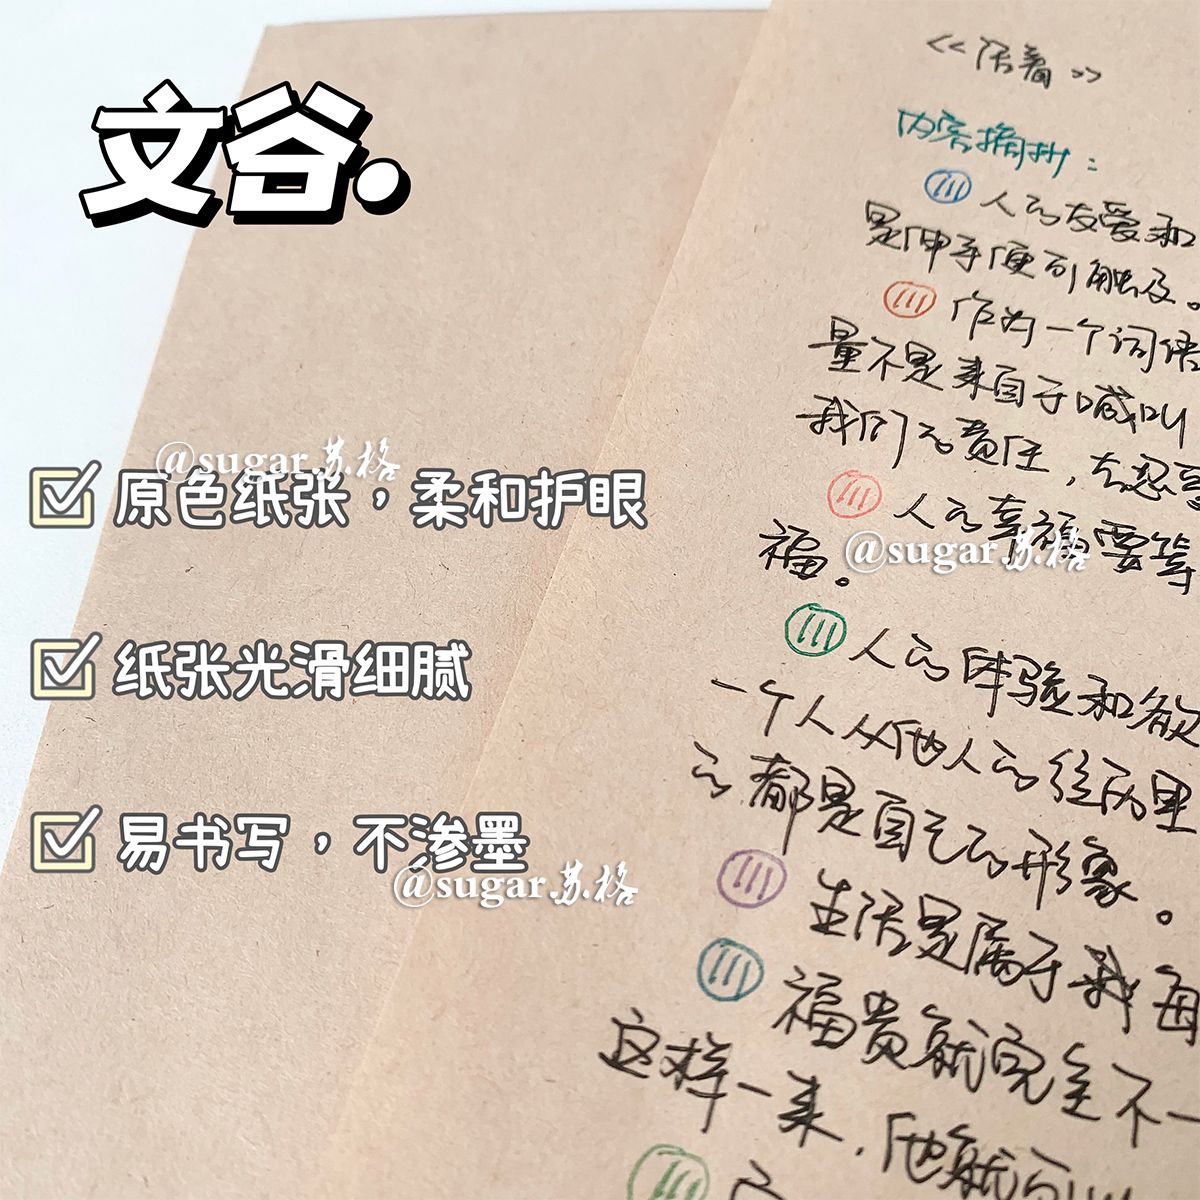 文谷.
@sugar.苏格
原色纸张，柔和护眼
纸张光滑细腻
易书写，不渗墨
@sugar.苏格
<<活着>>
内容摘抄：
人的友爱和
是伸手便可触及。
作为一个词语
量不是来自于喊叫
我们的责任，去忍受
人的幸福要等
福。
@sugar.苏格
人的体验和欲
一个人从他人的经历里
的都是自己的形象。
生活是属于我每
福贵就完全不一
这样一来，他就可